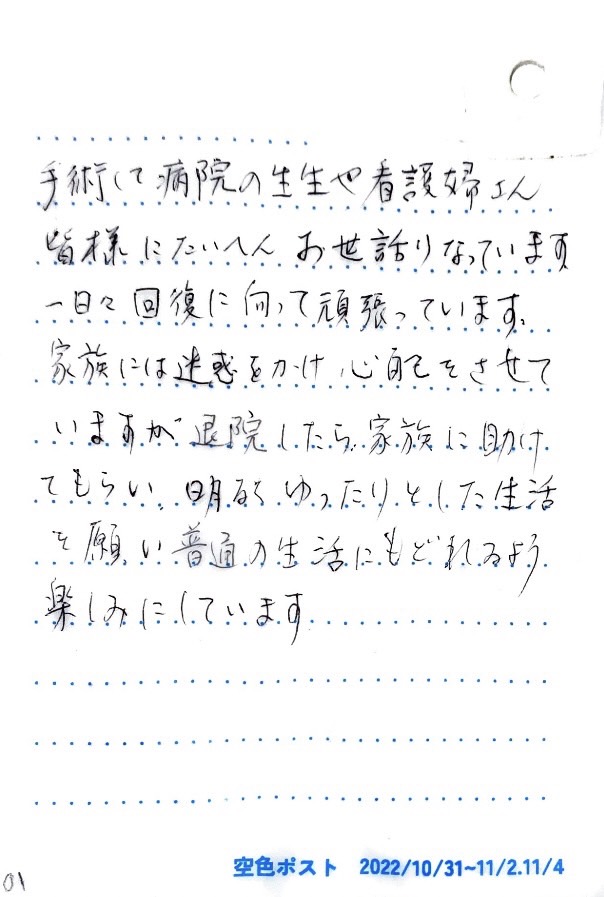 手術して病院の生生や看護婦さん
皆様にたいへんお世話りなっています
一日々回復に向って頑張っています。
家族には迷惑をかけ、心配をさせて
いますが退院したら、家族に助け
てもらい、明るくゆったりとした生活
を願い普通の生活にもどれるよう
楽しみにしています
空色ポスト 2022/10/31~11/2.11/4
01